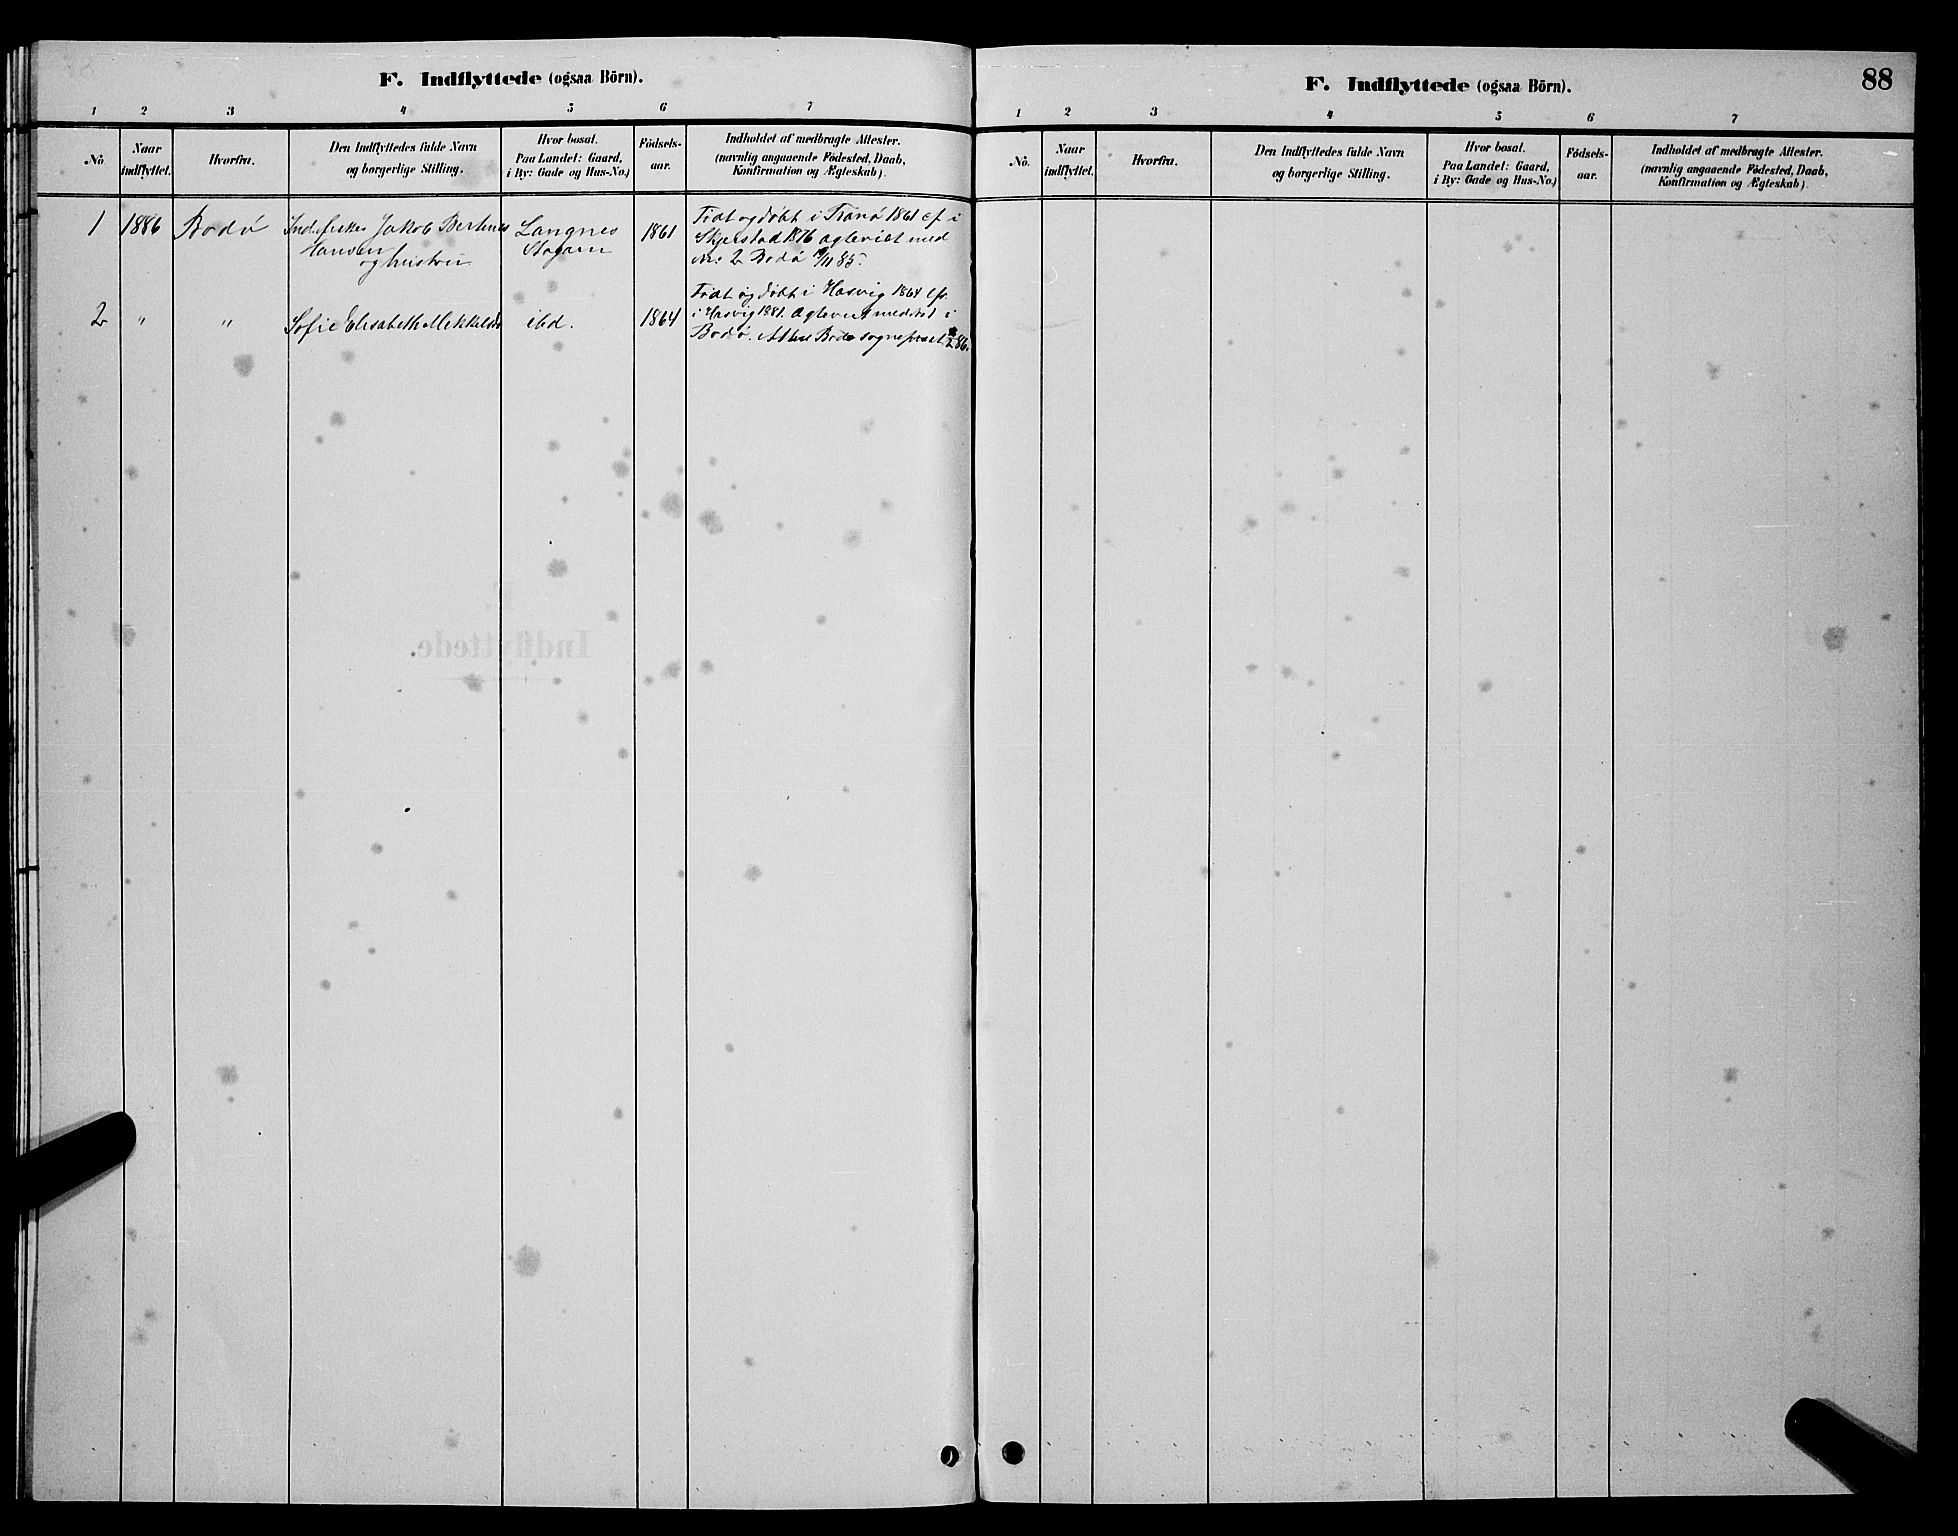 F. Indflyttede (ogsaa Börn).
1 2 3 4 5 6 7
No. Naar indflyttet. Hvorfra. Den Indflyttedes fulde Navn og borgerlige Stilling. Hvor bosat. Paa Landet: Gaard, i By: Gade og Hus-No.) Fødsels-aar. Indholdet af medbragte Attester. (navnlig angaaende Födested, Daab, Konfirmation og Ægteskab).
1 1886 Bodö Jakob Hansen og hustru Langnes 1861 Födt og döbt i Tranö 1861 cf. i
Skjerstad 1876 Ægteviet med
No: 2 Bodö /11 85.
2 " " Sofie Elisabeth Mikkelsd. ibd. 1864 Födt og döbt i Hasvig 1864 cfr.
i Hasvig 1881. Ægteviet med No 1 i
Bodö. Bodö sognepræst 86.
Indflyttede.
F. Indflyttede (ogsaa Börn).
88
1 2 3 4 5 6 7
No. Naar indflyttet. Hvorfra. Den Indflyttedes fulde Navn og borgerlige Stilling. Hvor bosat. Paa Landet: Gaard, i By: Gade og Hus-No.) Fødsels-aar. Indholdet af medbragte Attester. (navnlig angaaende Födested, Daab, Konfirmation og Ægteskab).